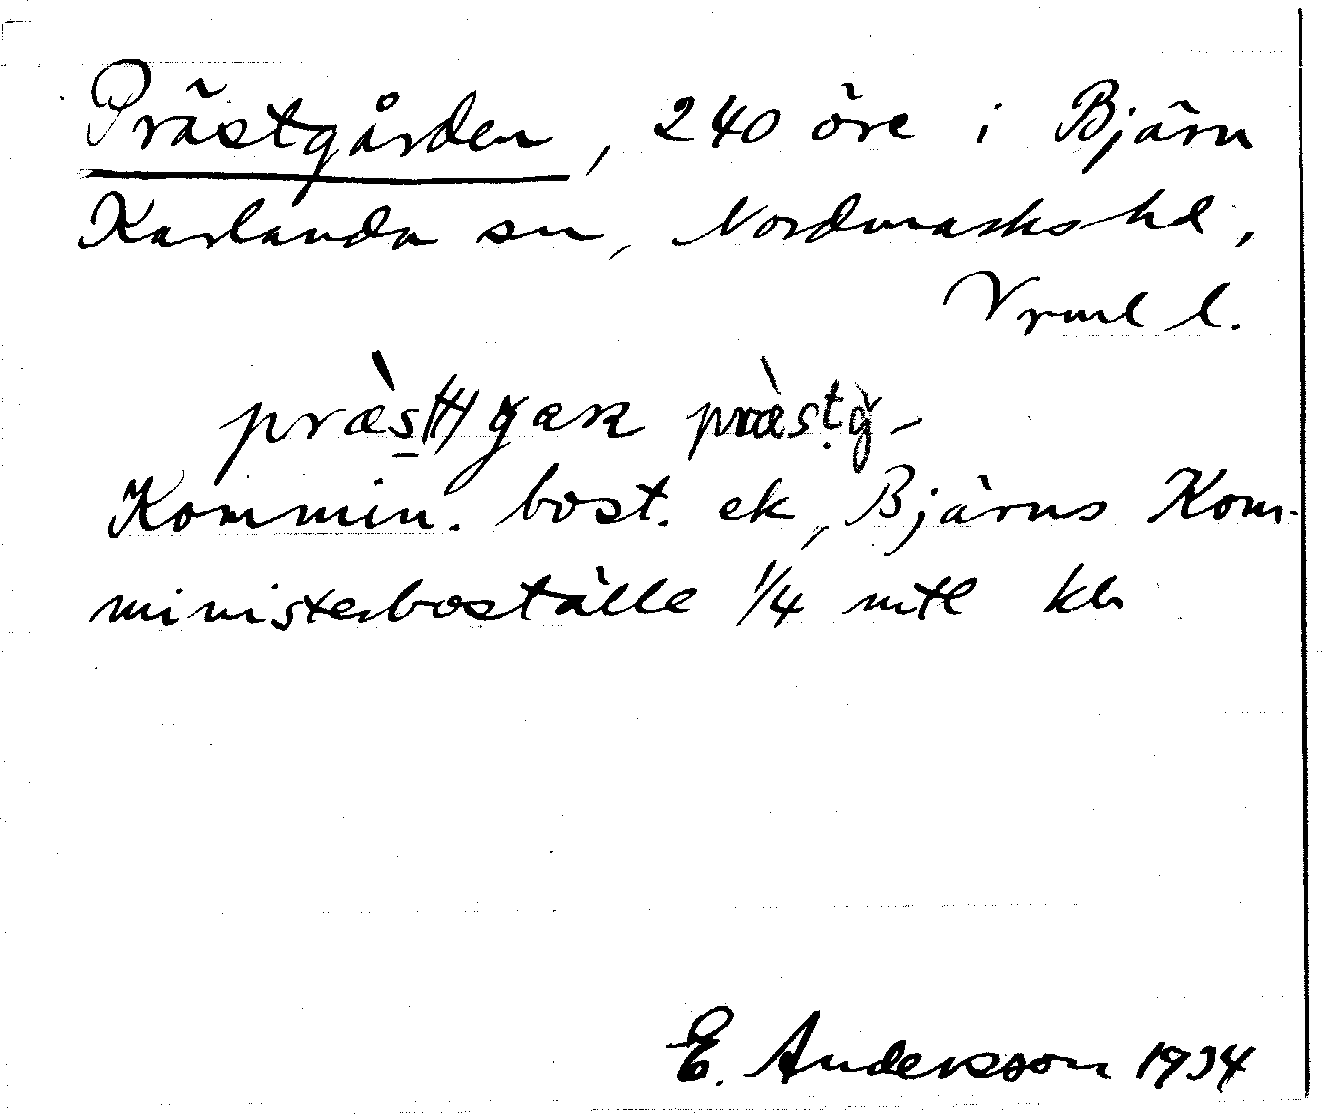 Prästgården, 240 öre i Bjärn
Karlanda sn, Nordmarks hd,
Vrml l.
præ̀s(t)gaʀ præ̀stg-
Kommin. bost. ek, Bjärns Kom-
ministerboställe 1/4 mtl kb
E. Andersson 1934